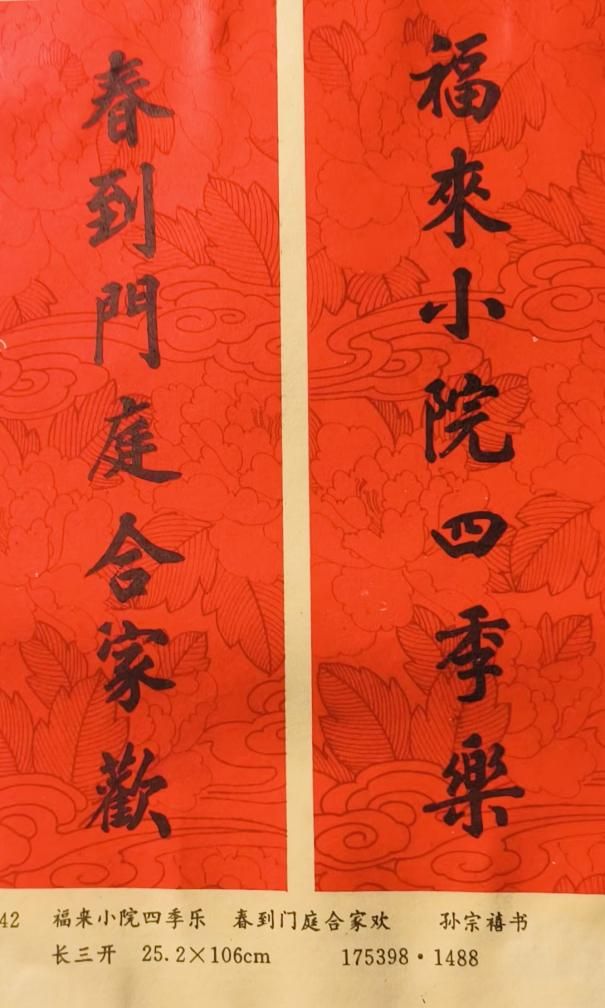 福來小院四季樂
春到門庭合家歡
42 福来小院四季乐 春到门庭合家欢 孙宗禧书
长三开 25.2×106cm 175398·1488